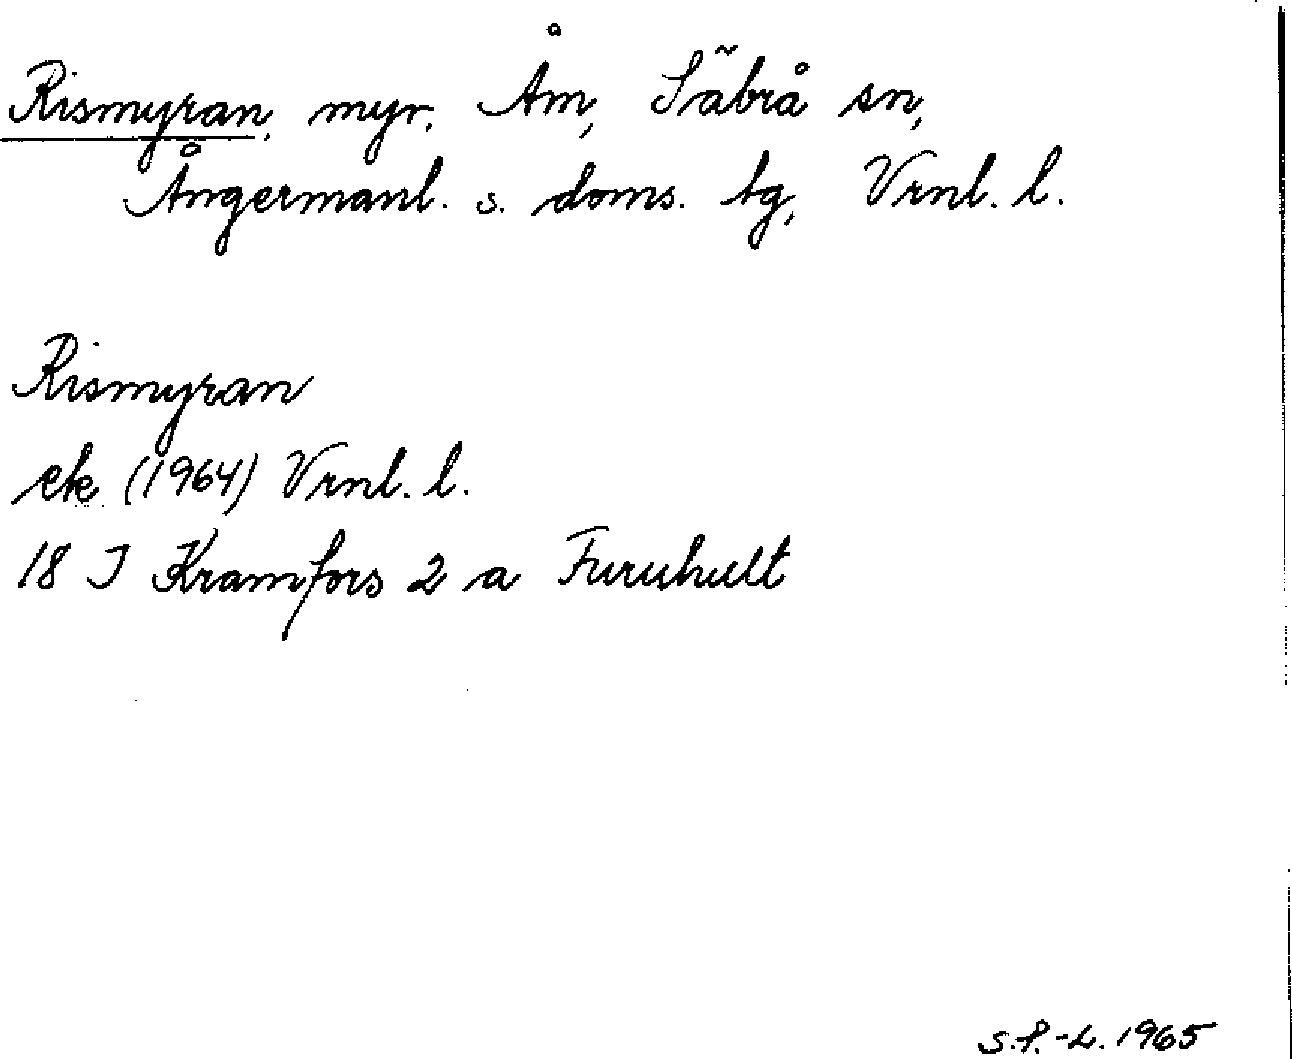 Rismyran, myr, Åm, Säbrå sn,
Ångermanl. s. doms. tg, Vrnl. l.
Rismyran
ek (1964) Vrnl. l.
18 I Kramfors 2 a Furuhult
S.P.-L. 1965